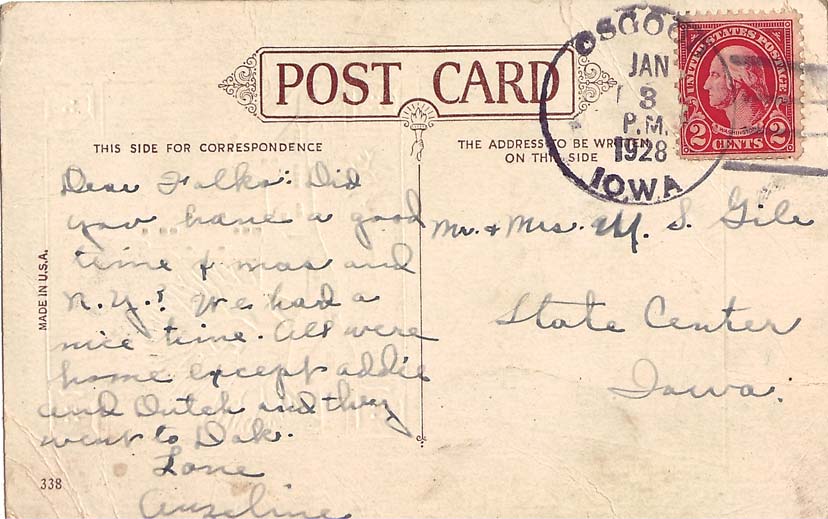 POST CARD
THIS SIDE FOR CORRESPONDENCE
THE ADDRESS TO BE WRITTEN
ON THIS SIDE
OSGOO
JAN
3
P.M.
1928
IOWA
UNITED STATES POSTAGE
WASHINGTON
2 CENTS 2
Dear Folks: Did
you have a good
time Xmas and
N.Y.? We had a
nice time. All were
home except Addie
and Dutch and they
went to Dak.
Love
Mr. & Mrs. M. S. Gile
State Center
Iowa.
MADE IN U.S.A.
338